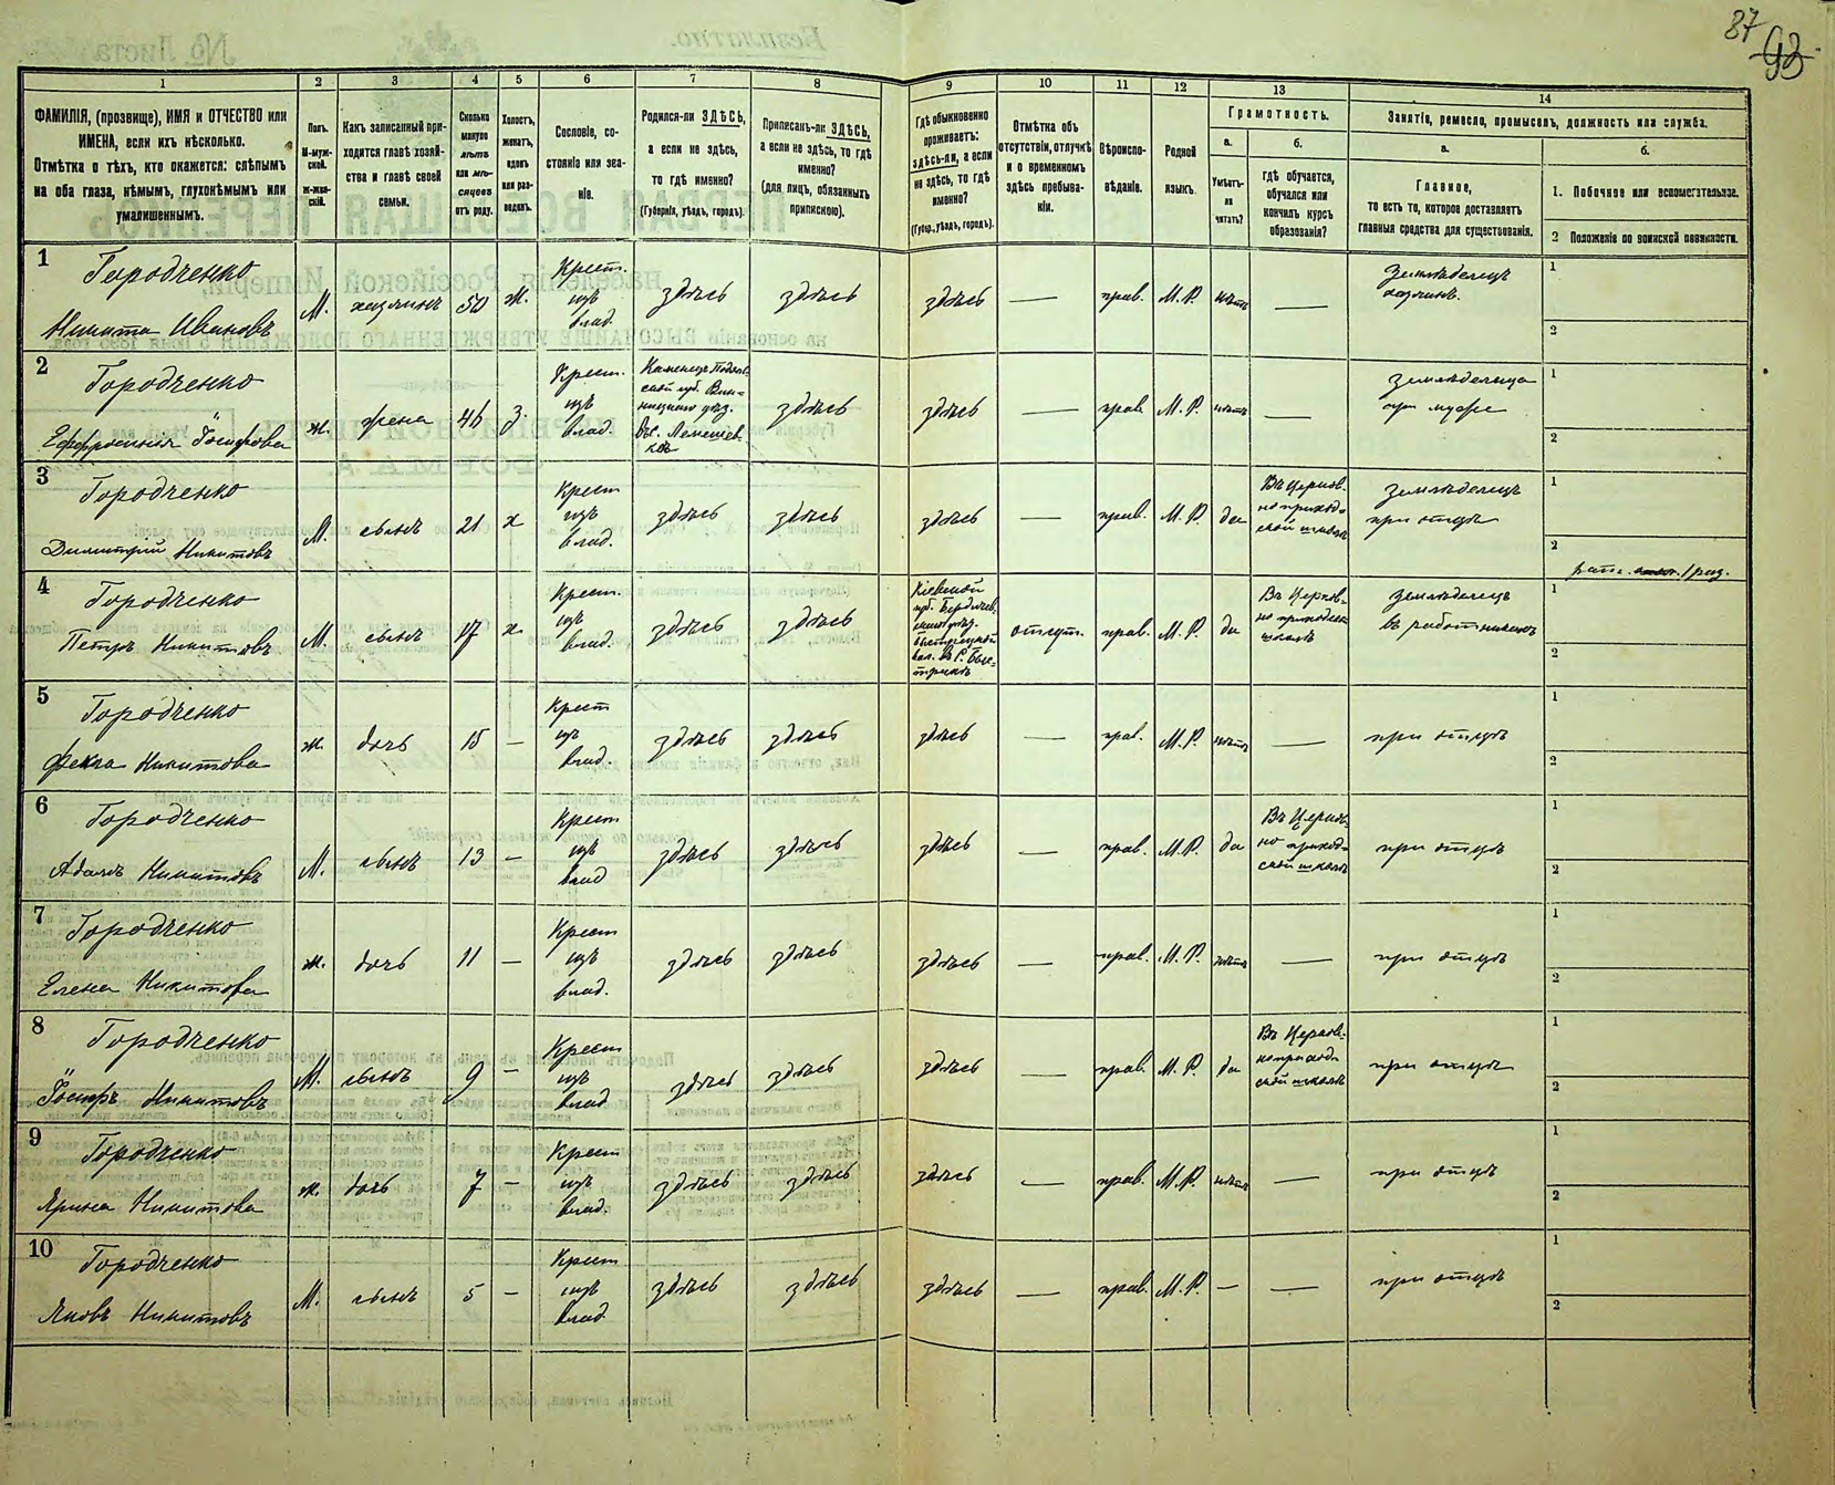 87
93
1
2
3
4
5
6
7
8
9
10
11
12
13
14
ФАМИЛІЯ, (прозвище), ИМЯ и ОТЧЕСТВО или
ИМЕНА, если ихъ нѣсколько.
Отмѣтка о тѣхъ, кто окажется: слѣпымъ
на оба глаза, нѣмымъ, глухонѣмымъ или
умалишеннымъ.
Полъ.
М-муж-
ской.
ж-жен-
скій.
Какъ записанный при-
ходится главѣ хозяй-
ства и главѣ своей
семьи.
Сколько
минуло
лѣтъ
или мѣ-
сяцевъ
отъ роду.
Холостъ,
женатъ,
вдовъ
или раз-
веденъ.
Сословіе, со-
стояніе или зва-
ніе.
Родился-ли ЗДѢСЬ,
а если не здѣсь,
то гдѣ именно?
(Губернія, уѣздъ, городъ).
Приписанъ-ли ЗДѢСЬ,
а если не здѣсь, то гдѣ
именно?
(для лицъ, обязанныхъ
припискою).
Гдѣ обыкновенно
проживаетъ:
здѣсь-ли, а если
не здѣсь, то гдѣ
именно?
(Губер., уѣздъ, городъ).
Отмѣтка объ
отсутствіи, отлучкѣ
и о временномъ
здѣсь пребыва-
ніи.
Вѣроиспо-
вѣданіе.
Родной
языкъ.
Грамотность.
а.
Умѣетъ-
ли
читать?
б.
гдѣ обучается,
обучался или
кончилъ курсъ
образованія?
Занятіе, ремесло, промыселъ, должность или служба.
а.
Главное,
то есть то, которое доставляетъ
главныя средства для существованія.
б.
1. Побочное или вспомогательное.
2 Положеніе по воинской повинности.
1
Городченко
Никита Ивановъ
М.
хазяинъ
50
ж.
Крест.
изъ
влад.
здѣсь
здѣсь
здѣсь
—
прав.
М. Р.
нѣтъ
—
Земледѣлецъ
хазяинъ.
1
2
2
Городченко
Еффросинія Іосифова
ж.
жена
46
з.
Крест.
изъ
влад.
Каменецъ Подоль-
ской губ. Вин-
ницкаго уѣз.
здѣсь
здѣсь
—
прав.
М. Р.
нѣтъ
—
при мужѣ
1
2
3
Городченко
Димитрій Никитовъ
М.
сынъ
21
х
Крест
изъ
влад.
здѣсь
здѣсь
здѣсь
—
прав.
М. Р.
да
Въ церков-
но приход-
ской школѣ
Земледѣлецъ
при отцѣ
1
2
4
Городченко
Петръ Никитовъ
М.
сынъ
17
х.
Крест.
изъ
влад.
здѣсь
здѣсь
Кіевской
губ. Бердичев-
отсут.
прав.
М. Р.
да
Въ Церков-
но приходск
школѣ
Земледѣлецъ
въ работникахъ
1
2
5
Городченко
Фекла Никитова
ж.
дочь
15
—
Крест
изъ
влад.
здѣсь
здѣсь
здѣсь
—
прав.
М. Р.
нѣтъ
—
при отцѣ
1
2
6
Городченко
Адамъ Никитовъ
М.
сынъ
13
—
Крест
изъ
влад
здѣсь
здѣсь
здѣсь
—
прав.
М. Р.
да
Въ Церков-
но приход-
ской школѣ
при отцѣ
1
2
7
Городченко
Елена Никитова
ж.
дочь
11
—
Крест
изъ
влад.
здѣсь
здѣсь
здѣсь
—
прав.
М. Р.
нѣтъ
—
при отцѣ
1
2
8
Городченко
Никитовъ
М.
сынъ
9
—
Крест
изъ
влад
здѣсь
здѣсь
здѣсь
—
прав.
М. Р.
да
Въ Церков-
но приход-
ской школѣ
при отцѣ
1
2
9
Городченко
Ярина Никитова
ж.
дочь
7
—
Крест
изъ
влад.
здѣсь
здѣсь
здѣсь
—
прав.
М. Р.
нѣтъ
—
при отцѣ
1
2
10
Городченко
Яковъ Никитовъ
М.
сынъ
5
—
Крест
изъ
влад
здѣсь
здѣсь
здѣсь
—
прав.
М. Р.
—
—
при отцѣ
1
2